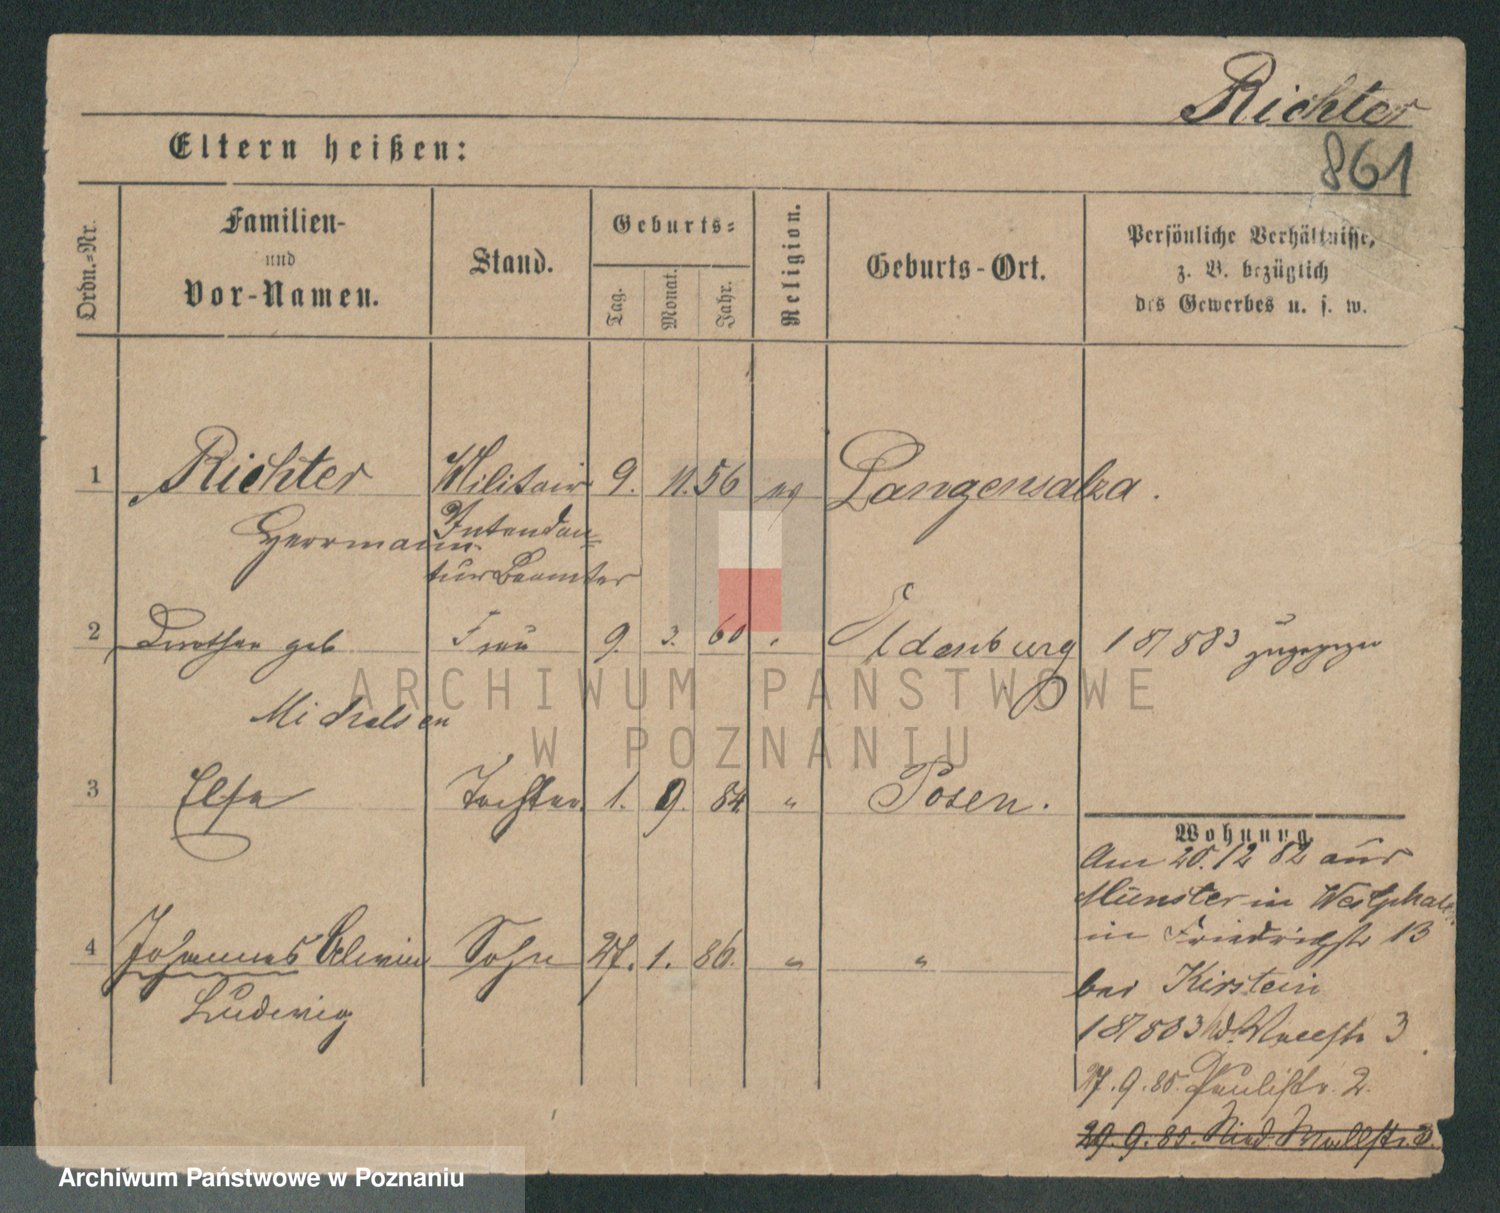 Richter
861
Eltern heißen:
Ordn.-Nr.
Familien-
und
Vor-Namen.
Stand.
Geburts-
Tag.
Monat.
Jahr.
Religion.
Geburts-Ort.
Persönliche Verhältnisse,
z. B. bezüglich
des Gewerbes u. s. w.
1 Richter Militair 9. 11. 56 ev Langensalza.
Herrmann Intendan=
tur Beamter
2 Dorothea geb Frau 9. 3. 60 " Oldenburg 1 8/7 883 zugezogen
Michelsen
3 Else Tochter. 1. 9. 84 " Posen.
Wohnung.
Am 20.12 82 aus
Münster in Westphal.
in Friedrichstr 13
bei Kirstein
4 Johannes Sohn 27. 1. 86. " "
Ludwig
3
27. 9. 85. Paulistr. 2.
29. 9. 85. Wallstr. 3.
ARCHIWUM PAŃSTWOWE
W POZNANIU
Archiwum Państwowe w Poznaniu